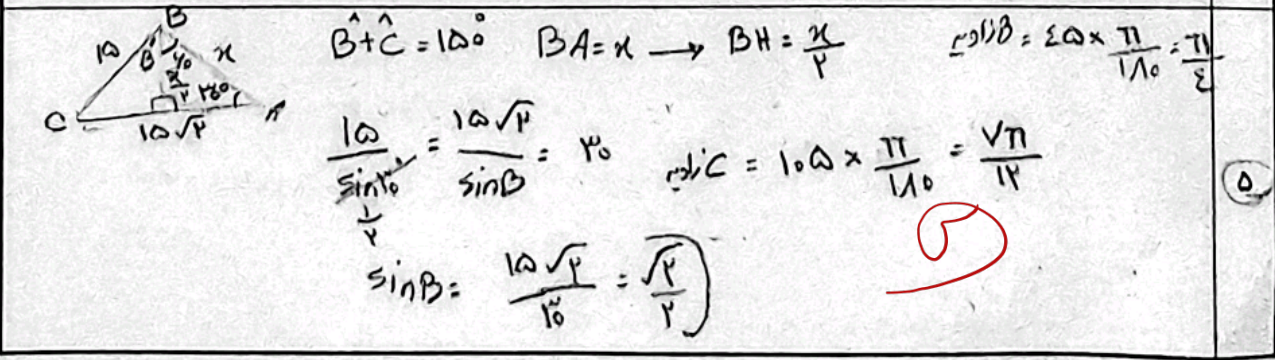 B
۱۵ x
B ۶۰
x/۲ ۳۰°
C A
۱۵√۲
B̂ + Ĉ = ۱۵۰° BA = x → BH = x/۲ زاویه B = ۴۵ × π/۱۸۰ = π/۴
۱۵/sin۳۰ = ۱۵√۲/sinB = ۳۰ زاویه C = ۱۰۵ × π/۱۸۰ = ۷π/۱۲
۱/۲
sinB = ۱۵√۲/۳۰ = √۲/۲
۵